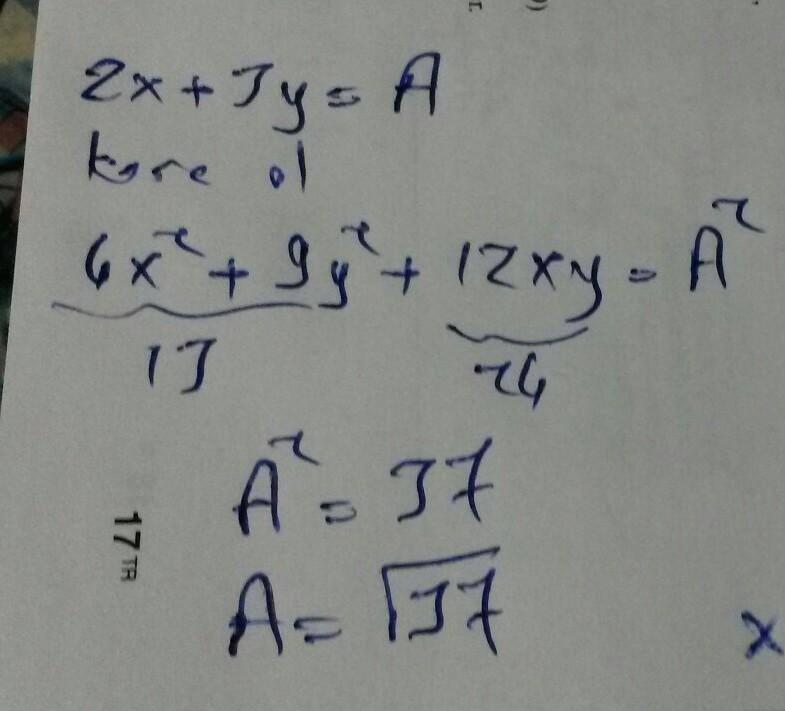 2x + 3y = A
kare al
4x² + 9y² + 12xy = A²
13 24
A² = 37
A = √37
17 TR
x